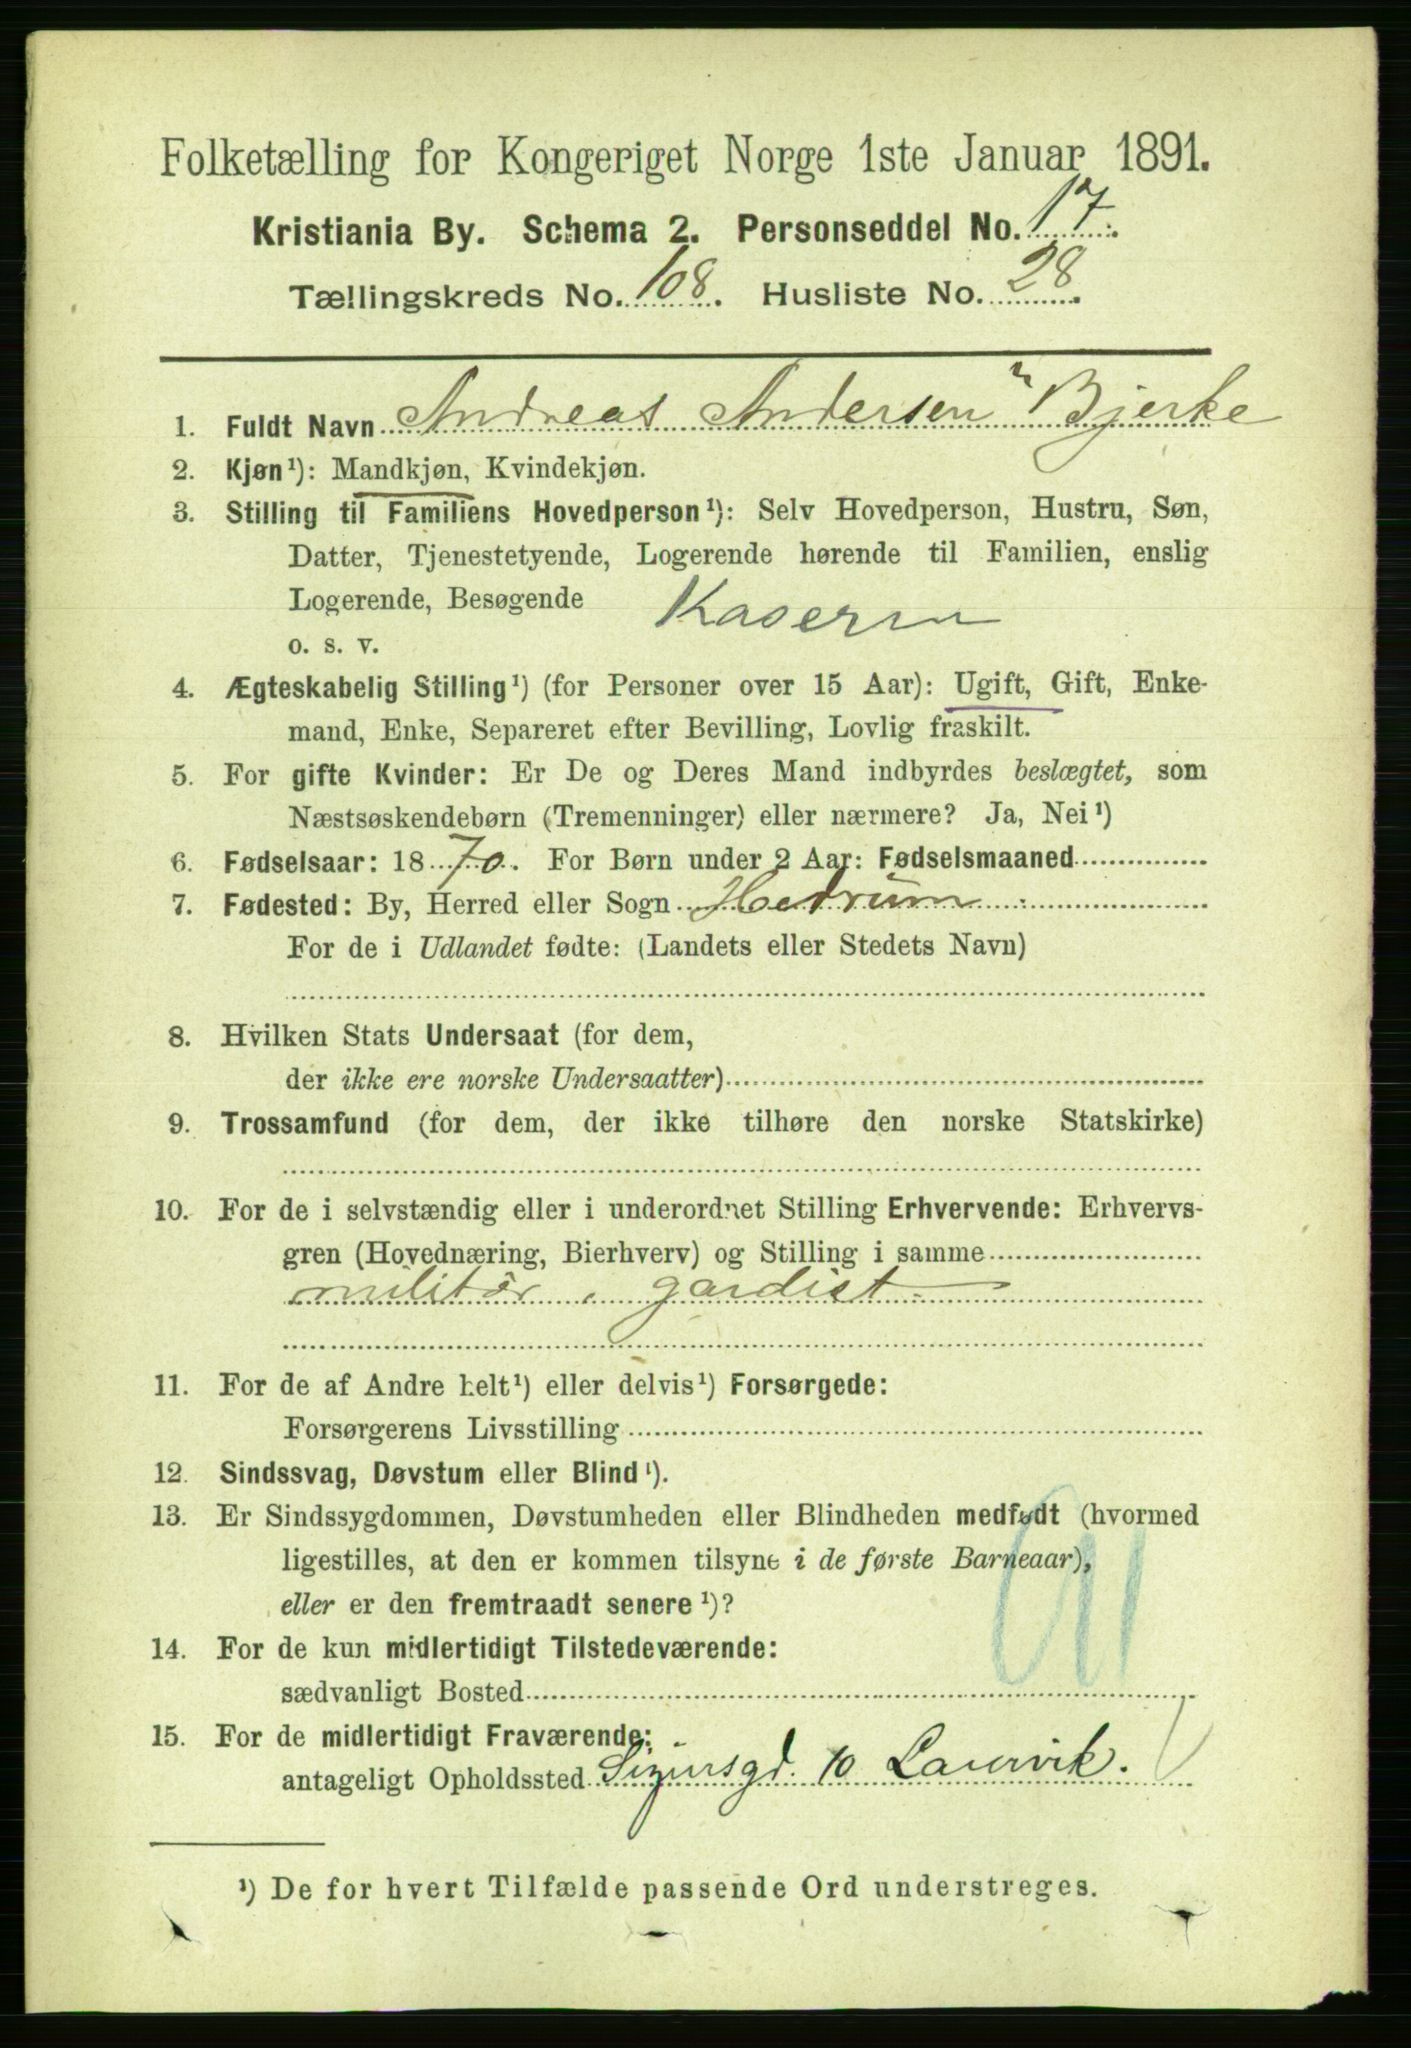 Folketælling for Kongeriget Norge 1ste Januar 1891.
Kristiania By. Schema 2. Personseddel No. 17.
Tællingskreds No. 108. Husliste No. 28.
1. Fuldt Navn Andreas Andersen Bjerke
2. Kjøn¹): Mandkjøn, Kvindekjøn.
3. Stilling til Familiens Hovedperson¹): Selv Hovedperson, Hustru, Søn,
Datter, Tjenestetyende, Logerende hørende til Familien, enslig
Logerende, Besøgende Kasern
o. s. v.
4. Ægteskabelig Stilling¹) (for Personer over 15 Aar): Ugift, Gift, Enke-
mand, Enke, Separeret efter Bevilling, Lovlig fraskilt.
5. For gifte Kvinder: Er De og Deres Mand indbyrdes beslægtet, som
Næstsøskendebørn (Tremenninger) eller nærmere? Ja, Nei¹)
6. Fødselsaar: 1870. For Børn under 2 Aar: Fødselsmaaned
7. Fødested: By, Herred eller Sogn Hedrum
For de i Udlandet fødte: (Landets eller Stedets Navn)
8. Hvilken Stats Undersaat (for dem,
der ikke ere norske Undersaatter)
9. Trossamfund (for dem, der ikke tilhøre den norske Statskirke)
10. For de i selvstændig eller i underordnet Stilling Erhvervende: Erhvervs-
gren (Hovednæring, Bierhverv) og Stilling i samme
militær, gardist
11. For de af Andre helt¹) eller delvis¹) Forsørgede:
Forsørgerens Livsstilling
12. Sindssvag, Døvstum eller Blind¹).
13. Er Sindssygdommen, Døvstumheden eller Blindheden medfødt (hvormed
ligestilles, at den er kommen tilsyne i de første Barneaar),
eller er den fremtraadt senere¹)?
14. For de kun midlertidigt Tilstedeværende:
sædvanligt Bosted
15. For de midlertidigt Fraværende:
antageligt Opholdssted 10 Laurvik.
¹) De for hvert Tilfælde passende Ord understreges.